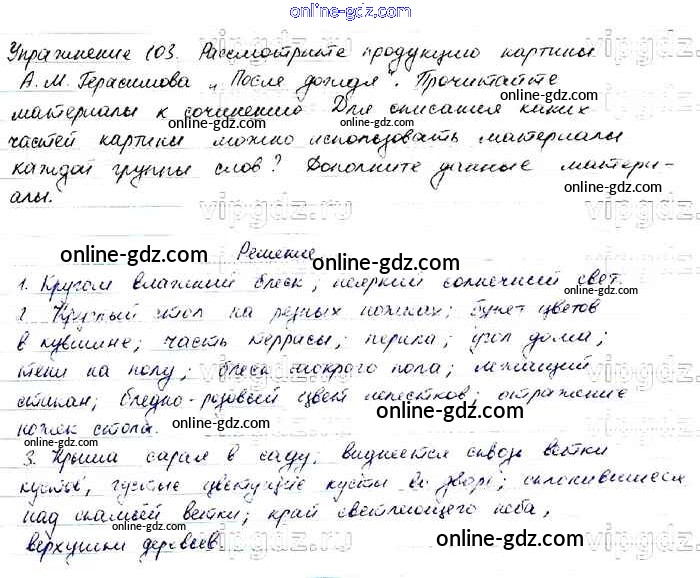 online-gdz.com
Упражнение 103. Рассмотрите продукцию картины
А. М. Герасимова „После дождя". Прочитайте
материалы к сочинению Для описания каких
частей картины можно использовать материалы
каждой группы слов? Дополните данные матери-
алы.
Решение
1. Кругом влажный блеск, неяркий солнечный свет.
2. Круглый стол на резных ножках; букет цветов
в кувшине; часть террасы; перила; угол дома;
тени на полу; блеск мокрого пола; лежащий
стакан; бледно-розовый цвет лепестков; отражение
ножек стола.
3. Крыша сарая в саду, виднеется сквозь ветки
кусты, густые цветущие кусты во дворе; склонившиеся
над скамьей ветки; край светлеющего неба,
верхушки деревьев